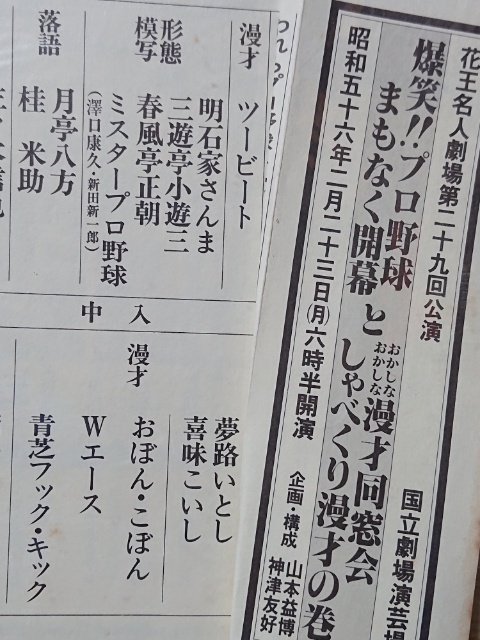 花王名人劇場第二十九回公演
国立劇場演芸場
爆笑!!プロ野球
まもなく開幕
と
おかしな
おかしな
漫才同窓会
しゃべくり漫才の巻
昭和五十六年二月二十三日(月)六時半開演
企画・構成
山本益博
神津友好
漫才
ツービート
形態
模写
明石家さんま
三遊亭小遊三
春風亭正朝
ミスタープロ野球
(澤口康久・新田新一郎)
落語
月亭八方
桂米助
中入
漫才
夢路いとし
喜味こいし
おぼん・こぼん
Wエース
青芝フック・キック